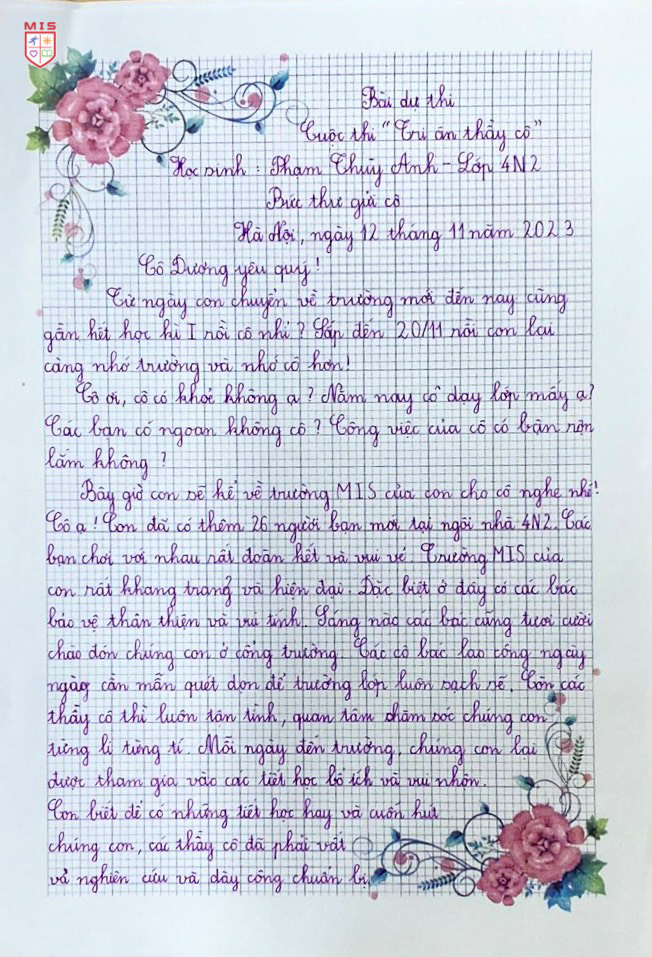 MIS
Bài dự thi
Cuộc thi "Tri ân thầy cô"
Học sinh : Phạm Thùy Anh - Lớp 4N2
Bức thư gửi cô
Hà Nội, ngày 12 tháng 11 năm 2023
Cô Dương yêu quý!
Từ ngày con chuyển về trường mới đến nay cũng
gần hết học kì I rồi cô nhỉ? Sắp đến 20/11 rồi con lại
càng nhớ trường và nhớ cô hơn!
Cô ơi, cô có khỏe không ạ? Năm nay cô dạy lớp mấy ạ?
Các bạn có ngoan không cô? Công việc của cô có bận rộn
lắm không ?
Bây giờ con sẽ kể về trường MIS của con cho cô nghe nhé!
Cô ạ! Con đã có thêm 26 người bạn mới tại ngôi nhà 4N2. Các
bạn chơi với nhau rất đoàn kết và vui vẻ. Trường MIS của
con rất khang trang và hiện đại. Đặc biệt ở đây có các bác
bảo vệ thân thiện và vui tính. Sáng nào các bác cũng tươi cười
chào đón chúng con ở cổng trường. Các cô bác lao công ngày
ngày cần mẫn quét dọn để trường lớp luôn sạch sẽ. Còn các
thầy cô thì luôn tận tình, quan tâm chăm sóc chúng con
từng li từng tí. Mỗi ngày đến trường, chúng con lại
được tham gia vào các tiết học bổ ích và vui nhộn.
Con biết để có những tiết học hay và cuốn hút
chúng con, các thầy cô đã phải vất
vả nghiên cứu và dày công chuẩn bị.